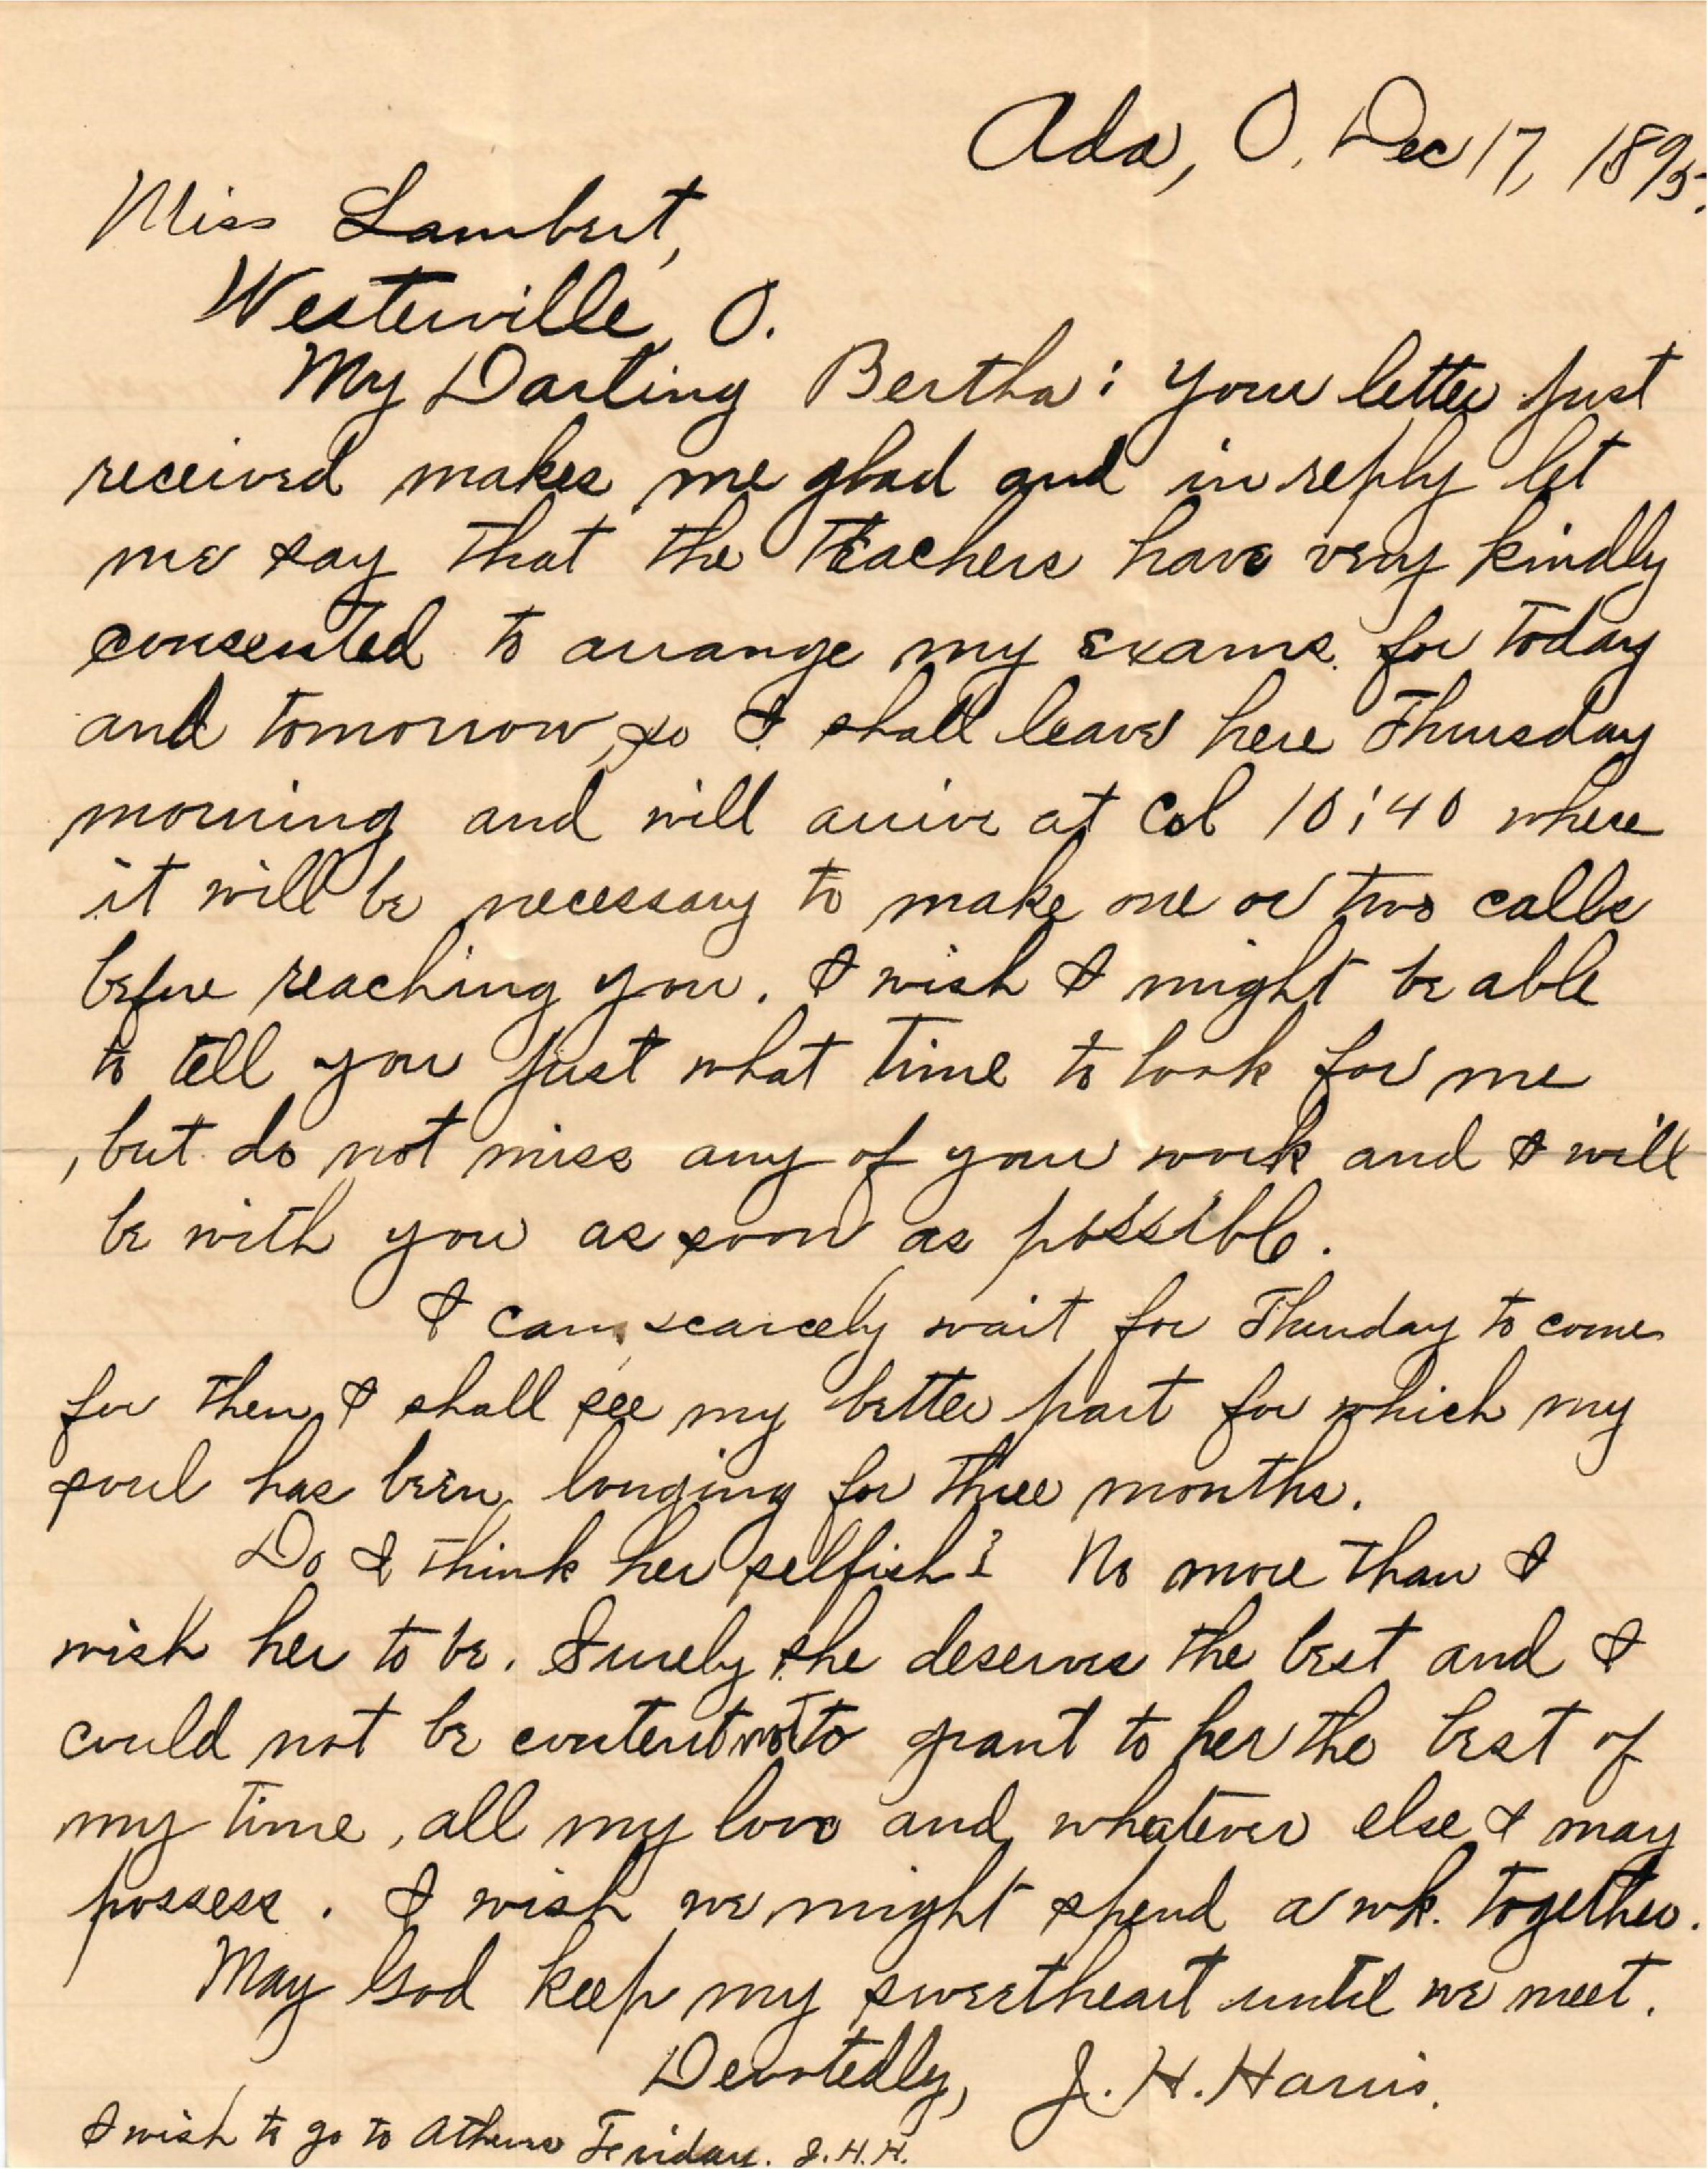 Ada, O. Dec 17, 1895.
Miss Lambert,
Westerville, O.
My Darling Bertha: Your letter just
received makes me glad and in reply let
me say that the teachers have very kindly
consented to arrange my exams. for today
and tomorrow, so I shall leave here Thursday
morning and will arrive at Col 10:40 where
it will be necessary to make one or two calls
before reaching you. I wish I might be able
to tell you just what time to look for me
, but do not miss any of your work and I will
be with you as soon as possible.
I can scarcely wait for Thursday to come
for then I shall see my better part for which my
soul has been longing for three months.
Do I think her selfish? No more than I
wish her to be. Surely she deserves the best and I
could not be content not to grant to her the best of
my time, all my love and whatever else I may
possess. I wish we might spend a wk. together.
May God keep my sweetheart until we meet.
Devotedly, J. H. Harris.
I wish to go to Athens Friday. J.H.H.